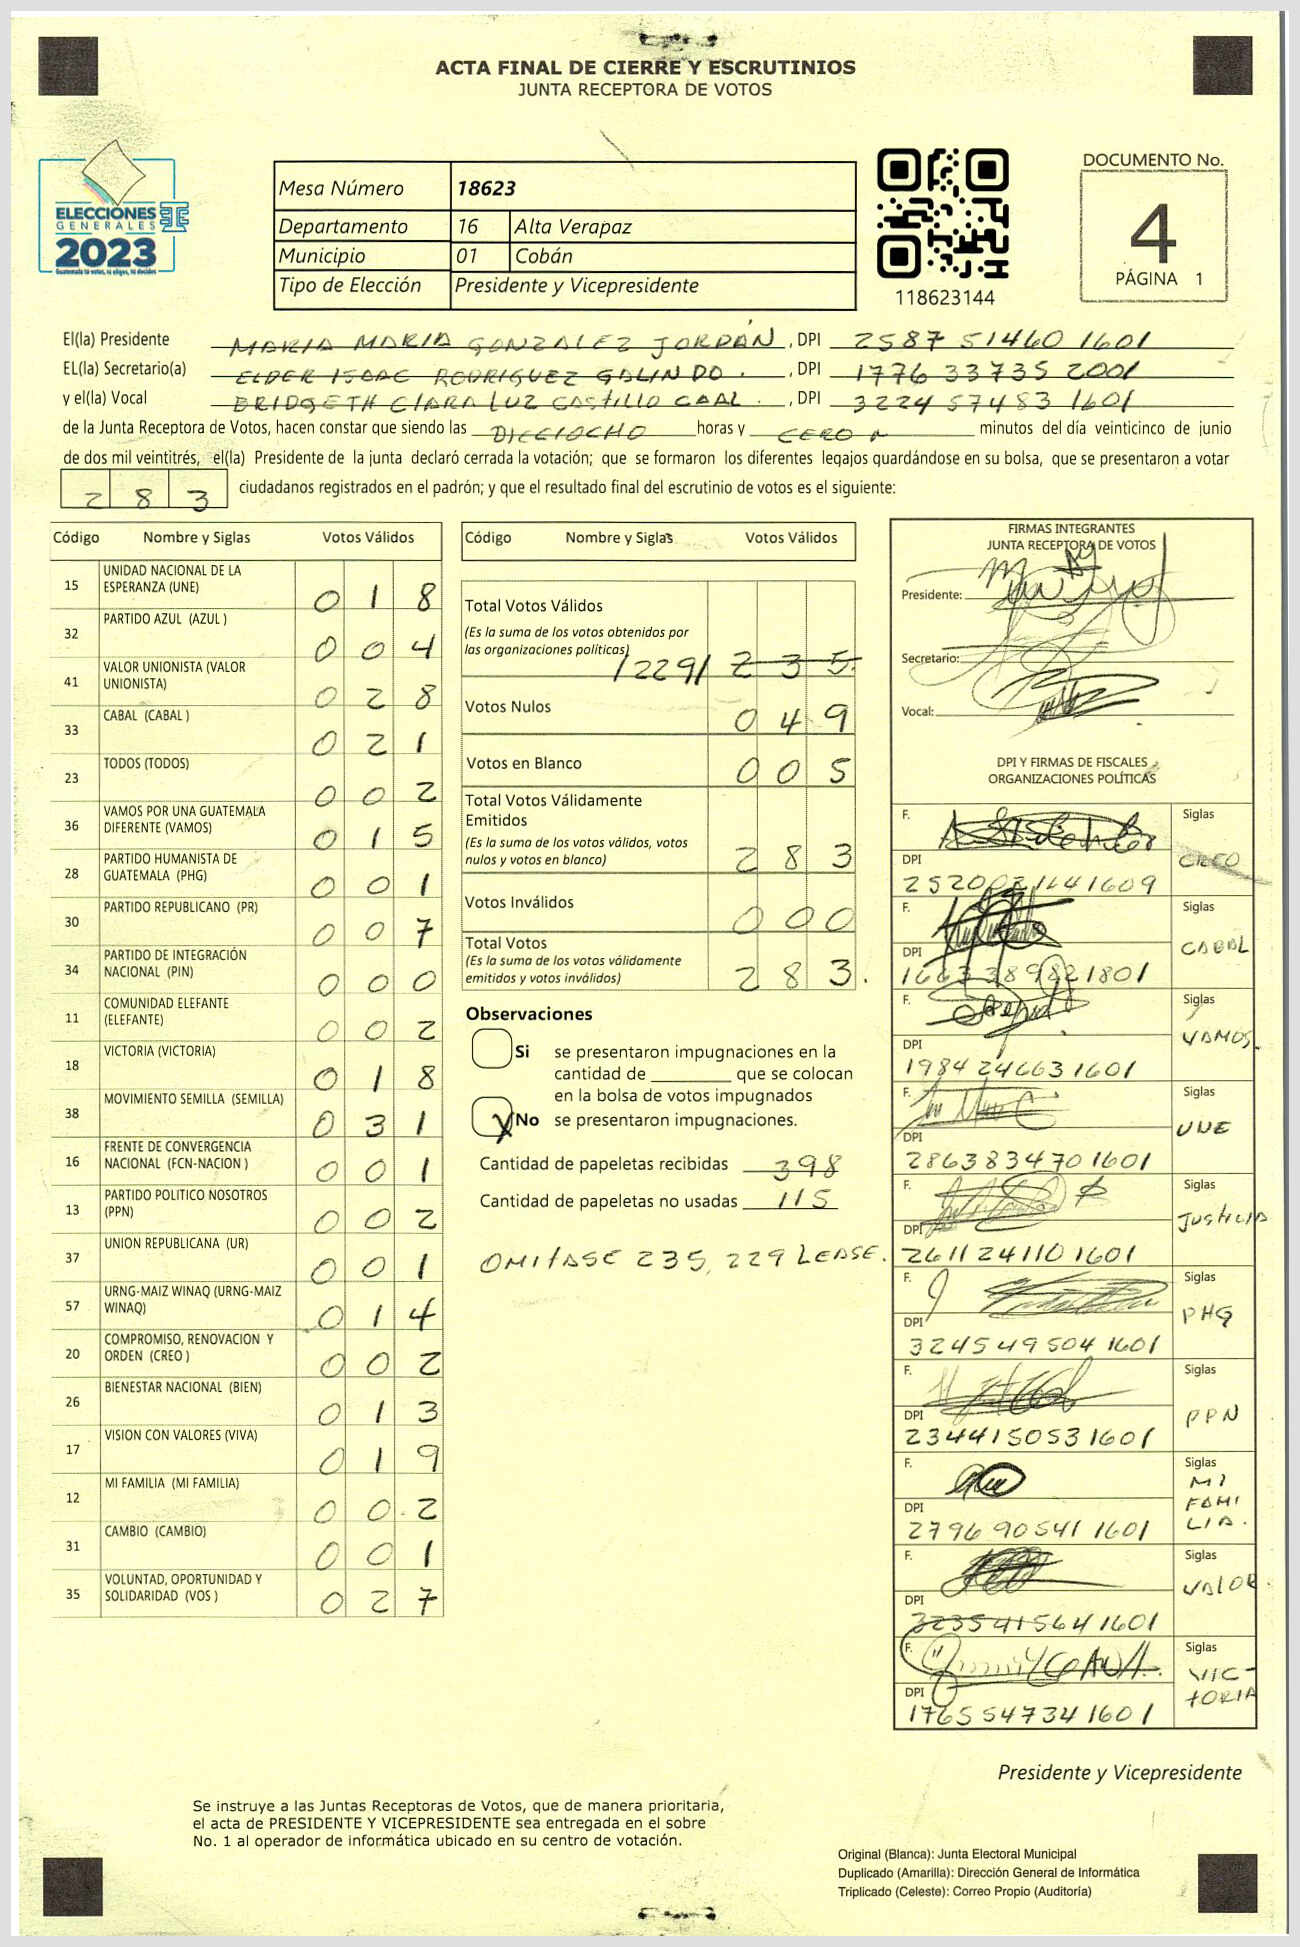 ACTA FINAL DE CIERRE Y ESCRUTINIOS
JUNTA RECEPTORA DE VOTOS
ELECCIONES
GENERALES
2023
Guatemala tú votas, tú eliges, tú decides
Mesa Número 18623
Departamento 16 Alta Verapaz
Municipio 01 Cobán
Tipo de Elección Presidente y Vicepresidente
118623144
DOCUMENTO No.
4
PÁGINA 1
El(la) Presidente MARIA MARIA GONZALEZ JORDÁN, DPI 2587 51460 1601
EL(la) Secretario(a) ELDER ISAAC RODRIGUEZ GALINDO. , DPI 1776 33735 2001
y el(la) Vocal BRIDGETH CLARA LUZ CASTILLO CAAL. , DPI 3224 57483 1601
de la Junta Receptora de Votos, hacen constar que siendo las DIECIOCHO horas y CERO minutos del día veinticinco de junio
de dos mil veintitrés, el(la) Presidente de la junta declaró cerrada la votación; que se formaron los diferentes legajos guardándose en su bolsa, que se presentaron a votar
283 ciudadanos registrados en el padrón; y que el resultado final del escrutinio de votos es el siguiente:
Código Nombre y Siglas Votos Válidos
15 UNIDAD NACIONAL DE LA
ESPERANZA (UNE) 0 1 8
32 PARTIDO AZUL (AZUL ) 0 0 4
41 VALOR UNIONISTA (VALOR
UNIONISTA) 0 2 8
33 CABAL (CABAL ) 0 2 1
23 TODOS (TODOS) 0 0 2
36 VAMOS POR UNA GUATEMALA
DIFERENTE (VAMOS) 0 1 5
28 PARTIDO HUMANISTA DE
GUATEMALA (PHG) 0 0 1
30 PARTIDO REPUBLICANO (PR) 0 0 7
34 PARTIDO DE INTEGRACIÓN
NACIONAL (PIN) 0 0 0
11 COMUNIDAD ELEFANTE
(ELEFANTE) 0 0 2
18 VICTORIA (VICTORIA) 0 1 8
38 MOVIMIENTO SEMILLA (SEMILLA) 0 3 1
16 FRENTE DE CONVERGENCIA
NACIONAL (FCN-NACION ) 0 0 1
13 PARTIDO POLITICO NOSOTROS
(PPN) 0 0 2
37 UNION REPUBLICANA (UR) 0 0 1
57 URNG-MAIZ WINAQ (URNG-MAIZ
WINAQ) 0 1 4
20 COMPROMISO, RENOVACION Y
ORDEN (CREO ) 0 0 2
26 BIENESTAR NACIONAL (BIEN) 0 1 3
17 VISION CON VALORES (VIVA) 0 1 9
12 MI FAMILIA (MI FAMILIA) 0 0 2
31 CAMBIO (CAMBIO) 0 0 1
35 VOLUNTAD, OPORTUNIDAD Y
SOLIDARIDAD (VOS ) 0 2 7
Código Nombre y Siglas Votos Válidos
Total Votos Válidos
(Es la suma de los votos obtenidos por
las organizaciones políticas) /229/ 2 3 5.
Votos Nulos 0 4 9
Votos en Blanco 0 0 5
Total Votos Válidamente
Emitidos
(Es la suma de los votos válidos, votos
nulos y votos en blanco) 2 8 3
Votos Inválidos 0 0 0
Total Votos
(Es la suma de los votos válidamente
emitidos y votos inválidos) 2 8 3.
Observaciones
Si se presentaron impugnaciones en la
cantidad de ________ que se colocan
en la bolsa de votos impugnados
X No se presentaron impugnaciones.
Cantidad de papeletas recibidas 398
Cantidad de papeletas no usadas 115
OMITASE 235, 229 LEASE.
FIRMAS INTEGRANTES
JUNTA RECEPTORA DE VOTOS
Presidente:
Secretario:
Vocal:
DPI Y FIRMAS DE FISCALES
ORGANIZACIONES POLÍTICAS
F. Siglas
DPI CREO
2520021141609
F. Siglas
DPI CABAL
1663389821801
F. Siglas
DPI VAMOS.
1984 24663 1601
F. Siglas
DPI UNE
2863834701601
F. Siglas
DPI JUSTICIA
2611241101601
F. Siglas
DPI PHG
324549504 1601
F. Siglas
DPI PPN
2344150531601
F. Siglas
DPI MI
FAMI
LIA.
2796 90541 1601
F. Siglas
DPI VALOR
3235415641601
F. Siglas
DPI VIC-
TORIA
1765547341601
Presidente y Vicepresidente
Se instruye a las Juntas Receptoras de Votos, que de manera prioritaria,
el acta de PRESIDENTE Y VICEPRESIDENTE sea entregada en el sobre
No. 1 al operador de informática ubicado en su centro de votación.
Original (Blanca): Junta Electoral Municipal
Duplicado (Amarilla): Dirección General de Informática
Triplicado (Celeste): Correo Propio (Auditoría)